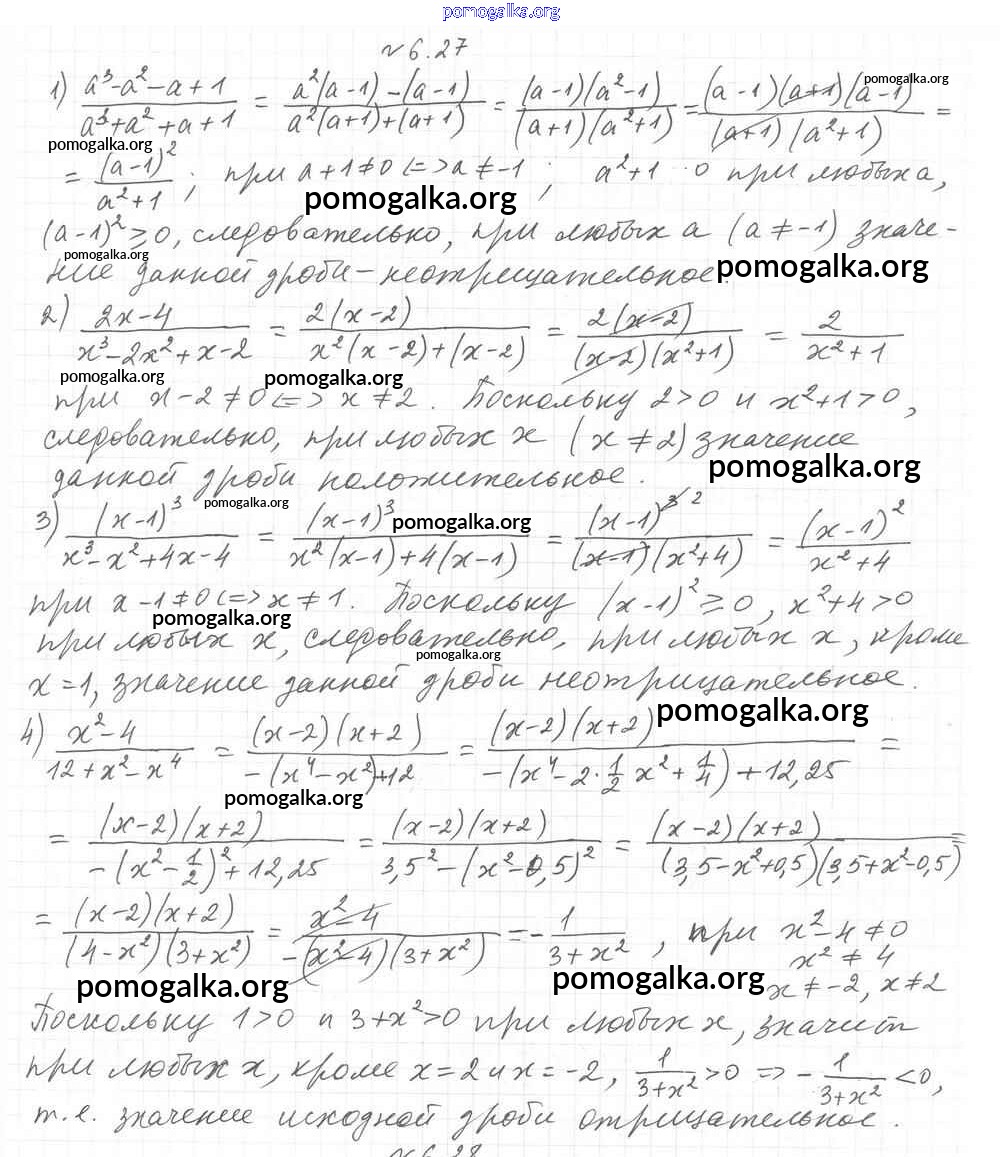 pomogalka.org
№ 6.27
1) (a³-a²-a+1)/(a³+a²+a+1) = (a²(a-1)-(a-1))/(a²(a+1)+(a+1)) = ((a-1)(a²-1))/((a+1)(a²+1)) = ((a-1)(a+1)(a-1))/((a+1)(a²+1)) =
pomogalka.org
pomogalka.org
= (a-1)²/(a²+1); при a+1≠0 <=> a≠-1; a²+1 0 при любых a,
pomogalka.org
(a-1)²≥0, следовательно, при любых a (a≠-1) значе-
pomogalka.org
ние данной дроби - неотрицательное.
pomogalka.org
2) (2x-4)/(x³-2x²+x-2) = (2(x-2))/(x²(x-2)+(x-2)) = (2(x-2))/((x-2)(x²+1)) = 2/(x²+1)
pomogalka.org
pomogalka.org
при x-2≠0 <=> x≠2. Поскольку 2>0 и x²+1>0,
следовательно, при любых x (x≠2) значение
данной дроби положительное.
pomogalka.org
pomogalka.org
3) (x-1)³/(x³-x²+4x-4) = (x-1)³/(x²(x-1)+4(x-1)) = (x-1)³ ²/((x-1)(x²+4)) = (x-1)²/(x²+4)
pomogalka.org
при x-1≠0 <=> x≠1. Поскольку (x-1)²≥0, x²+4>0
pomogalka.org
при любых x, следовательно, при любых x, кроме
pomogalka.org
x=1, значение данной дроби неотрицательное.
pomogalka.org
4) (x²-4)/(12+x²-x⁴) = ((x-2)(x+2))/(-(x⁴-x²)+12) = ((x-2)(x+2))/(-(x⁴-2·1/2 x²+1/4)+12,25) =
pomogalka.org
= ((x-2)(x+2))/(-(x²-1/2)²+12,25) = ((x-2)(x+2))/(3,5²-(x²-0,5)²) = ((x-2)(x+2))/((3,5-x²+0,5)(3,5+x²-0,5)) =
= ((x-2)(x+2))/((4-x²)(3+x²)) = (x²-4)/(-(x²-4)(3+x²)) = -1/(3+x²), при x²-4≠0
x²≠4
pomogalka.org
pomogalka.org
x≠-2, x≠2
Поскольку 1>0 и 3+x²>0 при любых x, значит
при любых x, кроме x=2 и x=-2, 1/(3+x²)>0 => -1/(3+x²)<0,
т.е. значение исходной дроби отрицательное.
№ 6.28